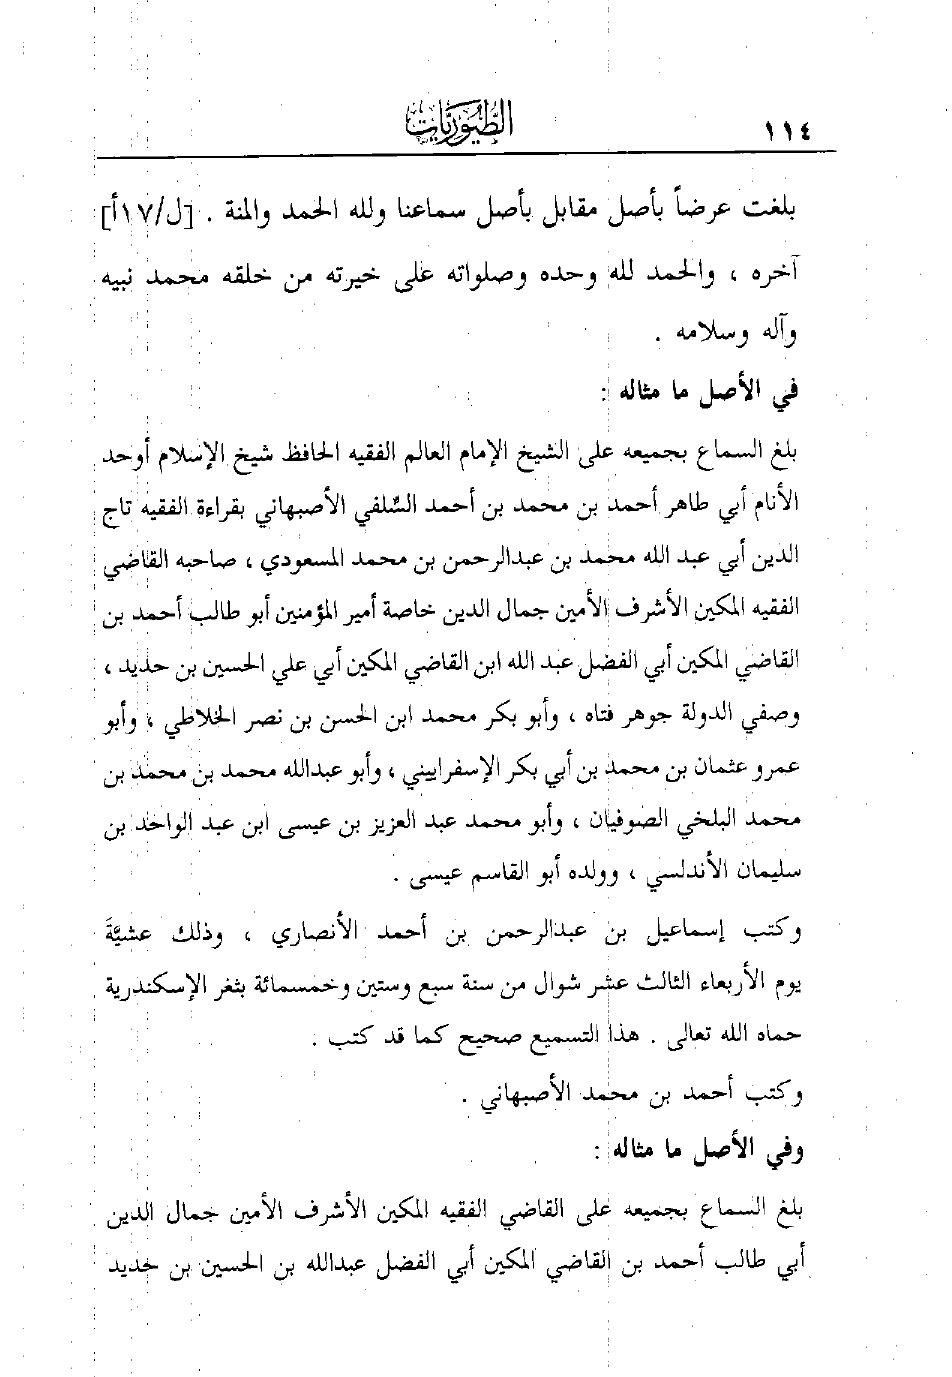 ١١٤
الطُّيُورِيَّات
بلغت عرضاً بأصل مقابل بأصل سماعنا ولله الحمد والمنة . [ل/١٧أ]
آخره ، والحمد لله وحده وصلواته على خيرته من خلقه محمد نبيه
وآله وسلامه .
في الأصل ما مثاله :
بلغ السماع بجميعه على الشيخ الإمام العالم الفقيه الحافظ شيخ الإسلام أوحد
الأنام أبي طاهر أحمد بن محمد بن أحمد السِّلفي الأصبهاني بقراءة الفقيه تاج
الدين أبي عبد الله محمد بن عبدالرحمن بن محمد المسعودي ، صاحبه القاضي
الفقيه المكين الأشرف الأمين جمال الدين خاصة أمير المؤمنين أبو طالب أحمد بن
القاضي المكين أبي الفضل عبد الله ابن القاضي المكين أبي علي الحسين بن حديد ،
وصفي الدولة جوهر فتاه ، وأبو بكر محمد ابن الحسن بن نصر الخلاطي ، وأبو
عمرو عثمان بن محمد بن أبي بكر الإسفراييني ، وأبو عبدالله محمد بن محمد بن
محمد البلخي الصوفيان ، وأبو محمد عبد العزيز بن عيسى ابن عبد الواحد بن
سليمان الأندلسي ، وولده أبو القاسم عيسى .
وكتب إسماعيل بن عبدالرحمن بن أحمد الأنصاري ، وذلك عشيَّةَ
يوم الأربعاء الثالث عشر شوال من سنة سبع وستين وخمسمائة بثغر الإسكندرية
حماه الله تعالى . هذا التسميع صحيح كما قد كتب .
وكتب أحمد بن محمد الأصبهاني .
وفي الأصل ما مثاله :
بلغ السماع بجميعه على القاضي الفقيه المكين الأشرف الأمين جمال الدين
أبي طالب أحمد بن القاضي المكين أبي الفضل عبدالله بن الحسين بن حديد